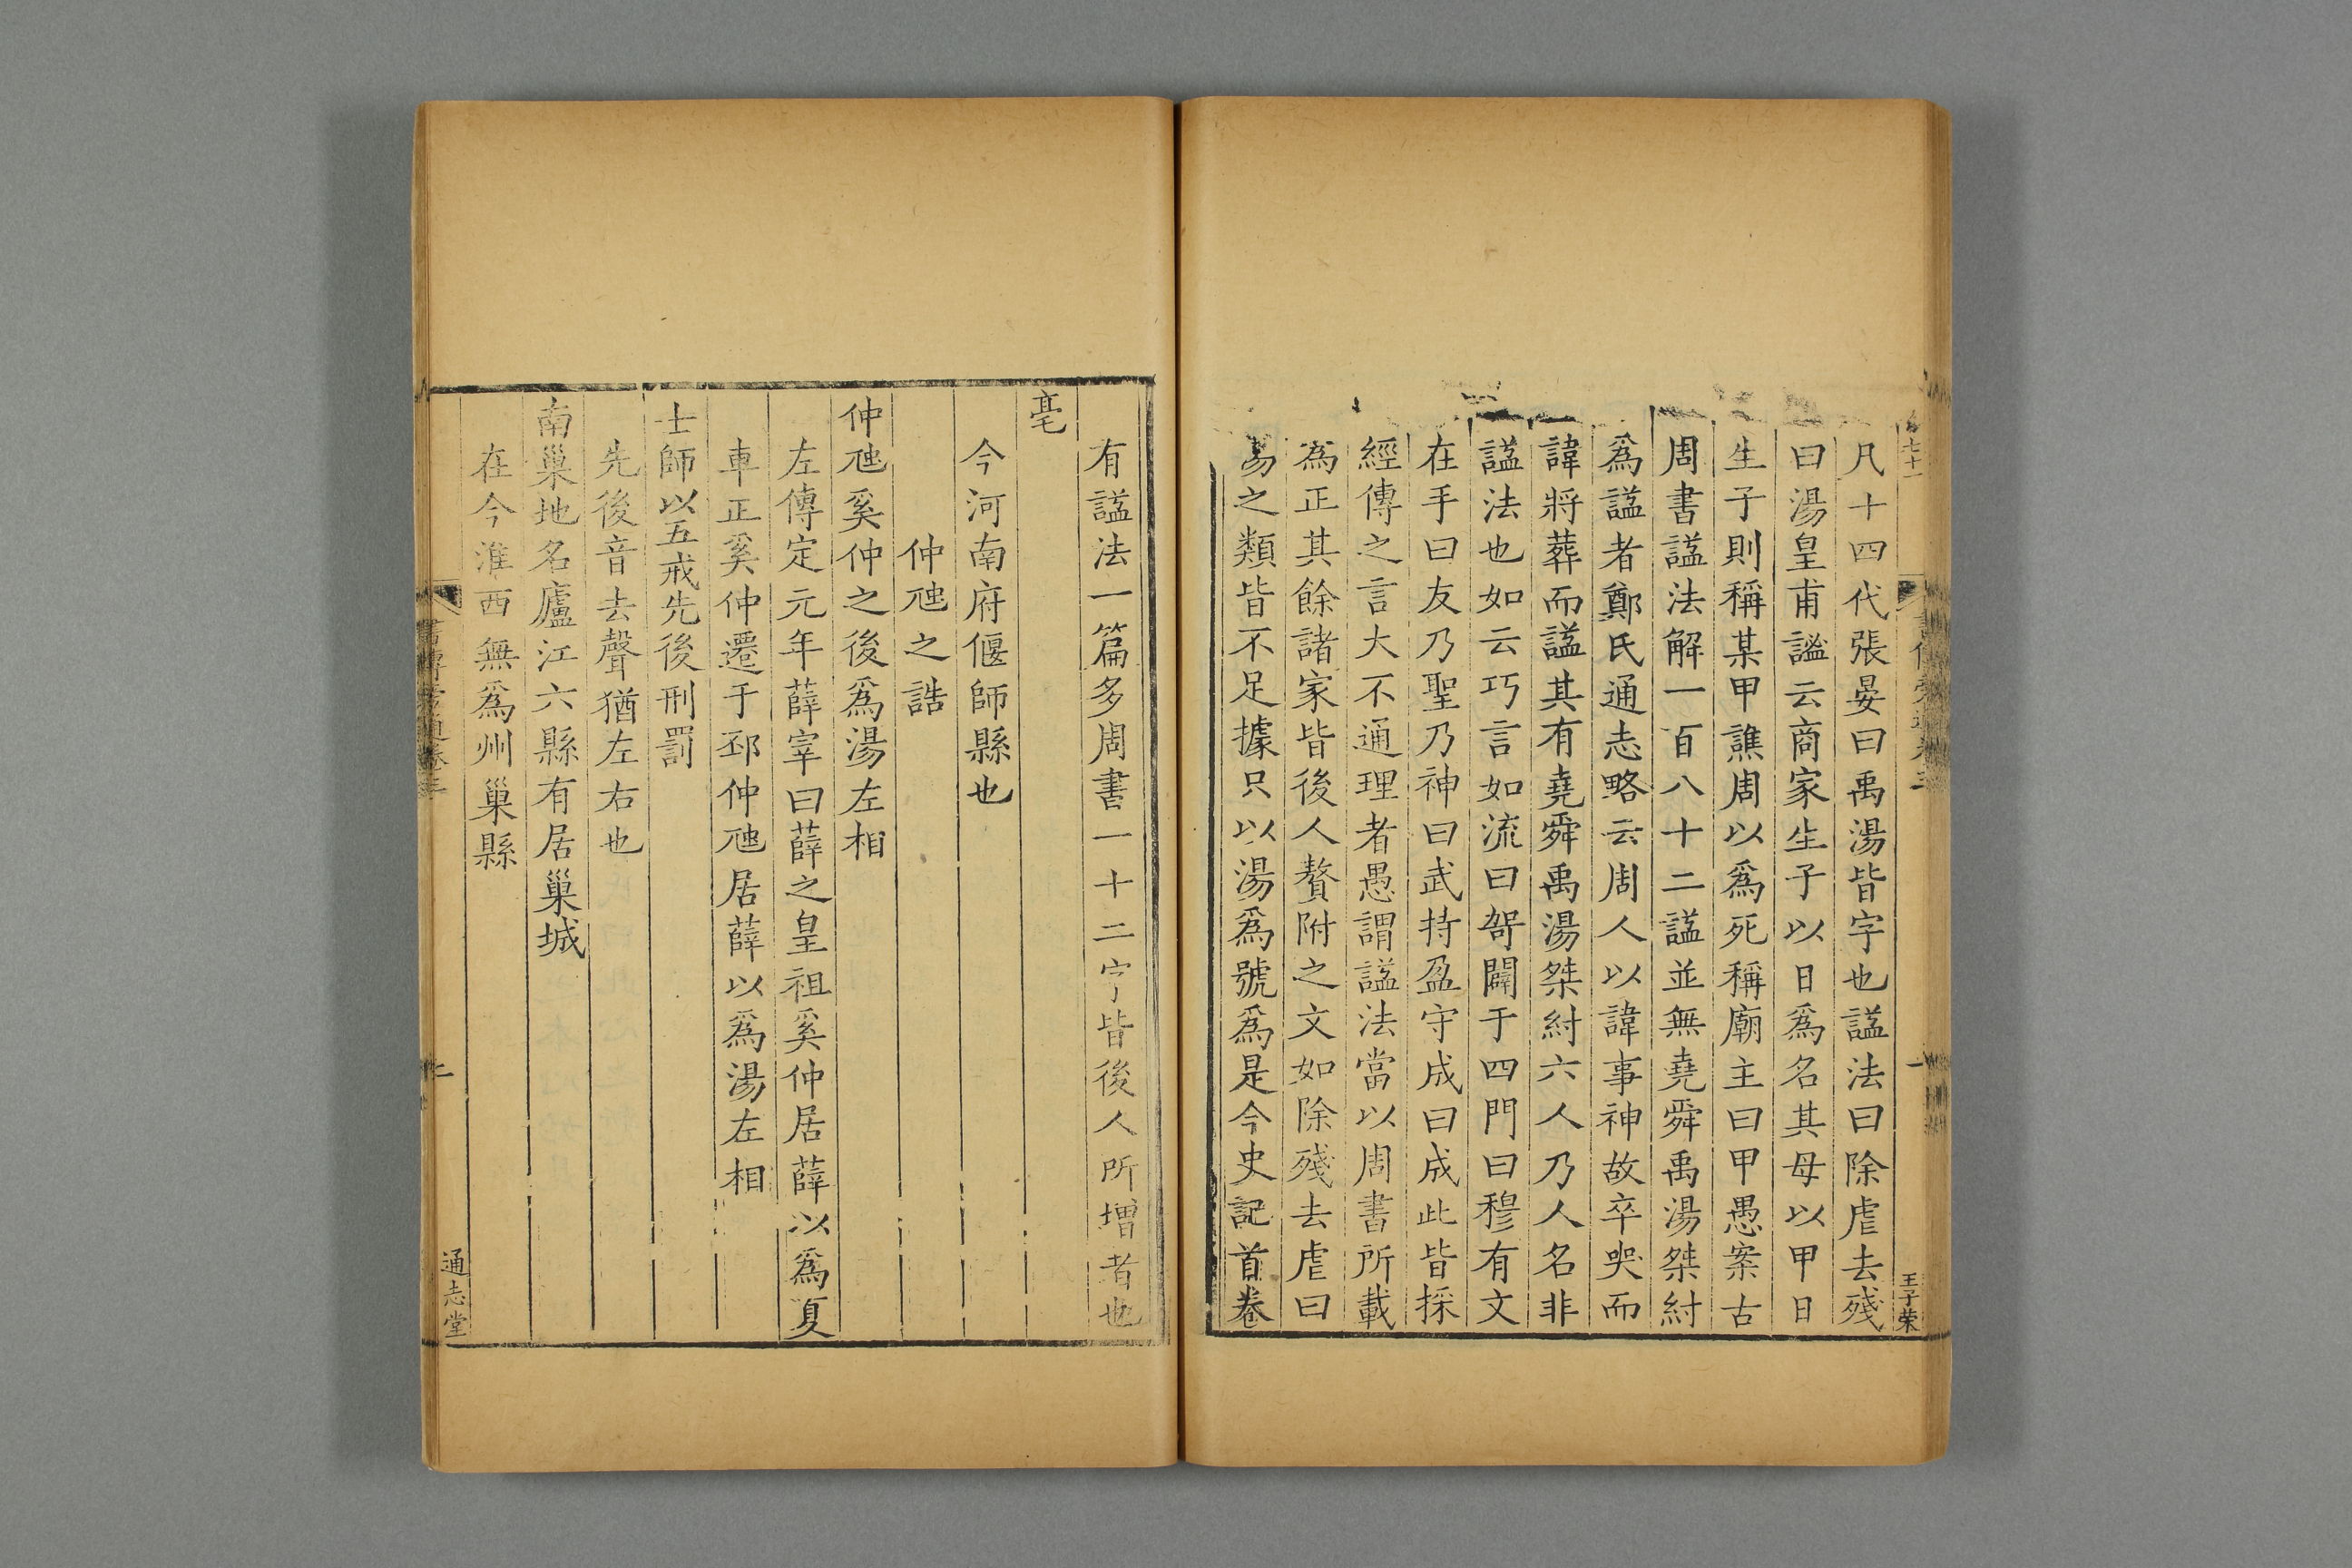 凡十四代張晏曰禹湯皆字也謚法曰除虐去殘
曰湯皇甫謐云商家生子以日爲名其母以甲日
生子則稱某甲譙周以爲死稱廟主曰甲愚案古
周書謚法解一百八十二謚並無堯舜禹湯桀紂
爲謚者鄭氏通志略云周人以諱事神故卒哭而
諱將葬而謚其有堯舜禹湯桀紂六人乃人名非
謚法也如云巧言如流曰哿闢于四門曰穆有文
在手曰友乃聖乃神曰武持盈守成曰成此皆採
經傳之言大不通理者愚謂謚法當以周書所載
為正其餘諸家皆後人贅附之文如除殘去虐曰
湯之類皆不足據只以湯爲號爲是今史記首卷
王子荣
有謚法一篇多周書一十二字皆後人所增者也
亳
今河南府偃師縣也
仲虺之誥
仲虺奚仲之後爲湯左相
左傳定元年薛宰曰薛之皇祖奚仲居薛以爲夏
車正奚仲遷于邳仲虺居薛以爲湯左相
士師以五戒先後刑罰
先後音去聲猶左右也
南巢地名廬江六縣有居巢城
在今淮西無爲州巢縣
通志堂